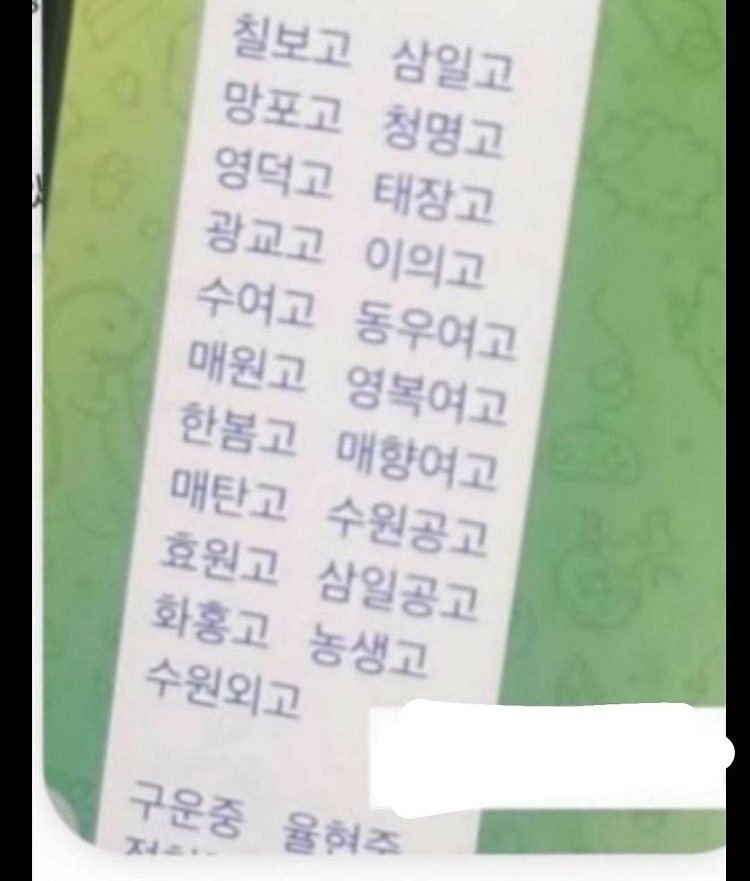 칠보고 삼일고
망포고 청명고
영덕고 태장고
광교고 이의고
수여고 동우여고
매원고 영복여고
한봄고 매향여고
매탄고 수원공고
효원고 삼일공고
화홍고 농생고
수원외고
구운중 율현중